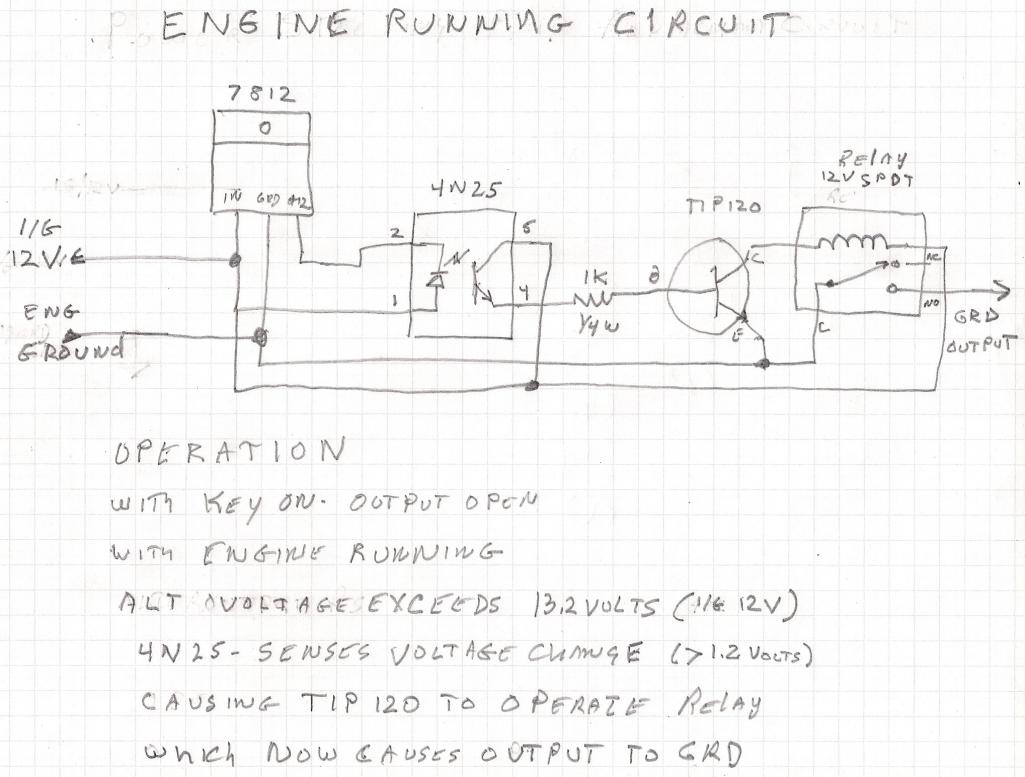 ENGINE RUNNING CIRCUIT
7812
O
IN GRD +12
4N25
Relay
12V SPDT
TIP120
I/G
12V
2
5
C
1K
B
1
4
NC
ENG
GROUND
1/4 W
E
C
NO
GRD
OUTPUT
OPERATION
WITH KEY ON- OUTPUT OPEN
WITH ENGINE RUNNING
ALT VOLTAGE EXCEEDS 13.2 VOLTS (I/G 12V)
4N25- SENSES VOLTAGE CHANGE (>1.2 VOLTS)
CAUSING TIP120 TO OPERATE Relay
Which NOW CAUSES OUTPUT TO GRD